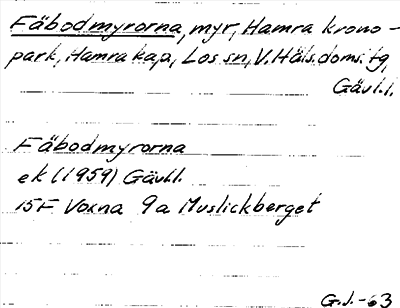 Fäbodmyrorna, myr, Hamra krono-
park, Hamra kap, Los sn, V. Häls. doms. tg,
Gävl. l.
Fäbodmyrorna
ek (1959) Gävl.l.
15F Voxna 9a Muslickberget
G.J.-63